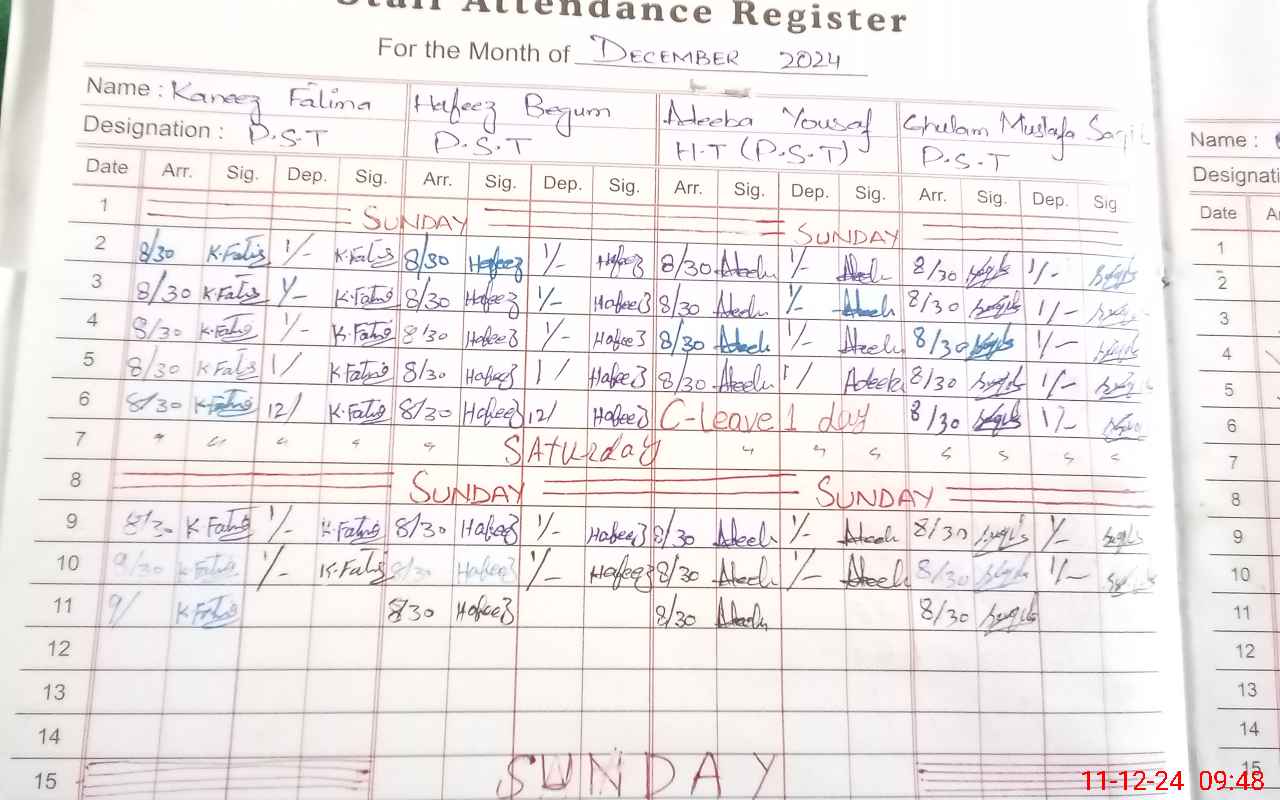 Staff Attendance Register
For the Month of DECEMBER 2024
Name : Kaneez Fatima Hafeez Begum Adeeba Yousaf Ghulam Mustafa
Designation : P.S.T P.S.T H.T (P.S.T) P.S.T
Date Arr. Sig. Dep. Sig. Arr. Sig. Dep. Sig. Arr. Sig. Dep. Sig. Arr. Sig. Dep. Sig
1 SUNDAY SUNDAY
2 8/30 K.Fatima 1/- K.Fatima 8/30 Hafeez 1/- Hafeez 8/30 Adeeb 1/- Adeeb 8/30 1/-
3 8/30 K.Fatima 1/- K.Fatima 8/30 Hafeez 1/- Hafeez 8/30 Adeeb 1/- Adeeb 8/30 1/-
4 8/30 K.Fatima 1/- K.Fatima 8/30 Hafeez 1/- Hafeez 8/30 Adeeb 1/- Adeeb 8/30 1/-
5 8/30 K.Fatima 1/ K.Fatima 8/30 Hafeez 1/ Hafeez 8/30 Adeeb 1/ Adeeba 8/30 1/-
6 8/30 K.Fatima 12/ K.Fatima 8/30 Hafeez 12/ Hafeez C-leave 1 day 8/30 1/-
7 " " " " " SAturday " " " " " " "
8 SUNDAY SUNDAY
9 8/30 K.Fatima 1/- K.Fatima 8/30 Hafeez 1/- Hafeez 8/30 Adeeb 1/- Adeeb 8/30 1/-
10 9/30 K.Fatima 1/- K.Fatima 8/30 Hafeez 1/- Hafeez 8/30 Adeeb 1/- Adeeb 8/30 1/-
11 9/ K.Fatima 8/30 Hafeez 8/30 Adeeb 8/30
12
13
14
15 SUNDAY
Name :
Date
1
2
3
4
5
6
7
8
9
10
11
12
13
14
15
11-12-24 09:48